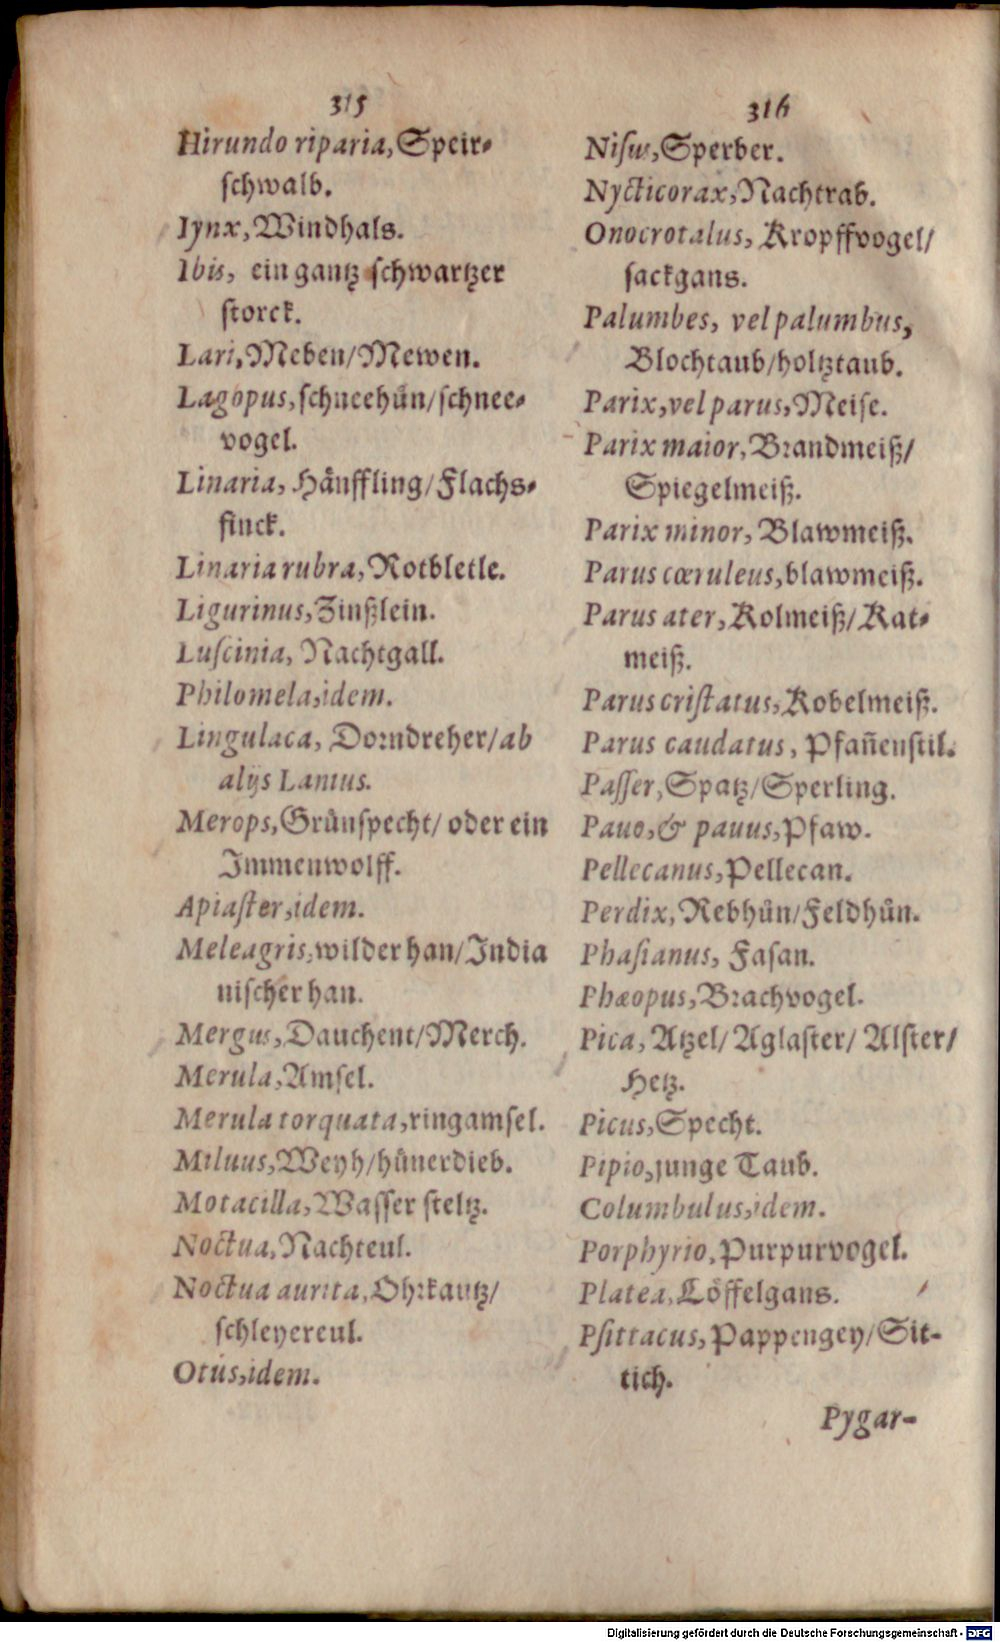 315
Hirundo riparia, Speir⸗
ſchwalb.
Iynx, Windhals.
Ibis, ein gantz ſchwartzer
ſtorck.
Lari, Meben/Mewen.
Lagopus, ſchneehůn/ſchnee⸗
vogel.
Linaria, Håuffling/Flachs⸗
finck.
Linaria rubra, Rotbletle.
Ligurinus, Zinßlein.
Luſcinia, Nachtgall.
Philomela, idem.
Lingulaca, Dorndreher/ab
alijs Lanius.
Merops, Grůnſpecht/ oder ein
Immenwolff.
Apiaſter, idem.
Meleagris, wilder han/India
niſcher han.
Mergus, Dauchent/Merch.
Merula, Amſel.
Merula torquata, ringamſel.
Miluus, Weyh/hůnerdieb.
Motacilla, Waſſer ſteltz.
Noctua, Nachteul.
Noctua aurita, Ohrkautz/
ſchleyereul.
Otus, idem.
316
Niſus, Sperber.
Nycticorax, Nachtrab.
Onocrotalus, Kropffvogel/
ſackgans.
Palumbes, vel palumbus,
Blochtaub/holtztaub.
Parix, vel parus, Meiſe.
Parix maior, Brandmeiß/
Spiegelmeiß.
Parix minor, Blawmeiß.
Parus cœruleus, blawmeiß.
Parus ater, Kolmeiß/Kat⸗
meiß.
Parus criſtatus, Kobelmeiß.
Parus caudatus, Pfañenſtil.
Paſſer, Spatz/Sperling.
Pauo, & pauus, Pfaw.
Pellecanus, Pellecan.
Perdix, Rebhůn/Feldhůn.
Phaſianus, Faſan.
Phæopus, Brachvogel.
Pica, Atzel/ Aglaſter/ Alſter/
Hetz.
Picus, Specht.
Pipio, junge Taub.
Columbulus, idem.
Porphyrio, Purpurvogel.
Platea, Löffelgans.
Pſittacus, Pappengey/Sit-
tich.
Pygar-
Digitalisierung gefördert durch die Deutsche Forschungsgemeinschaft - DFG